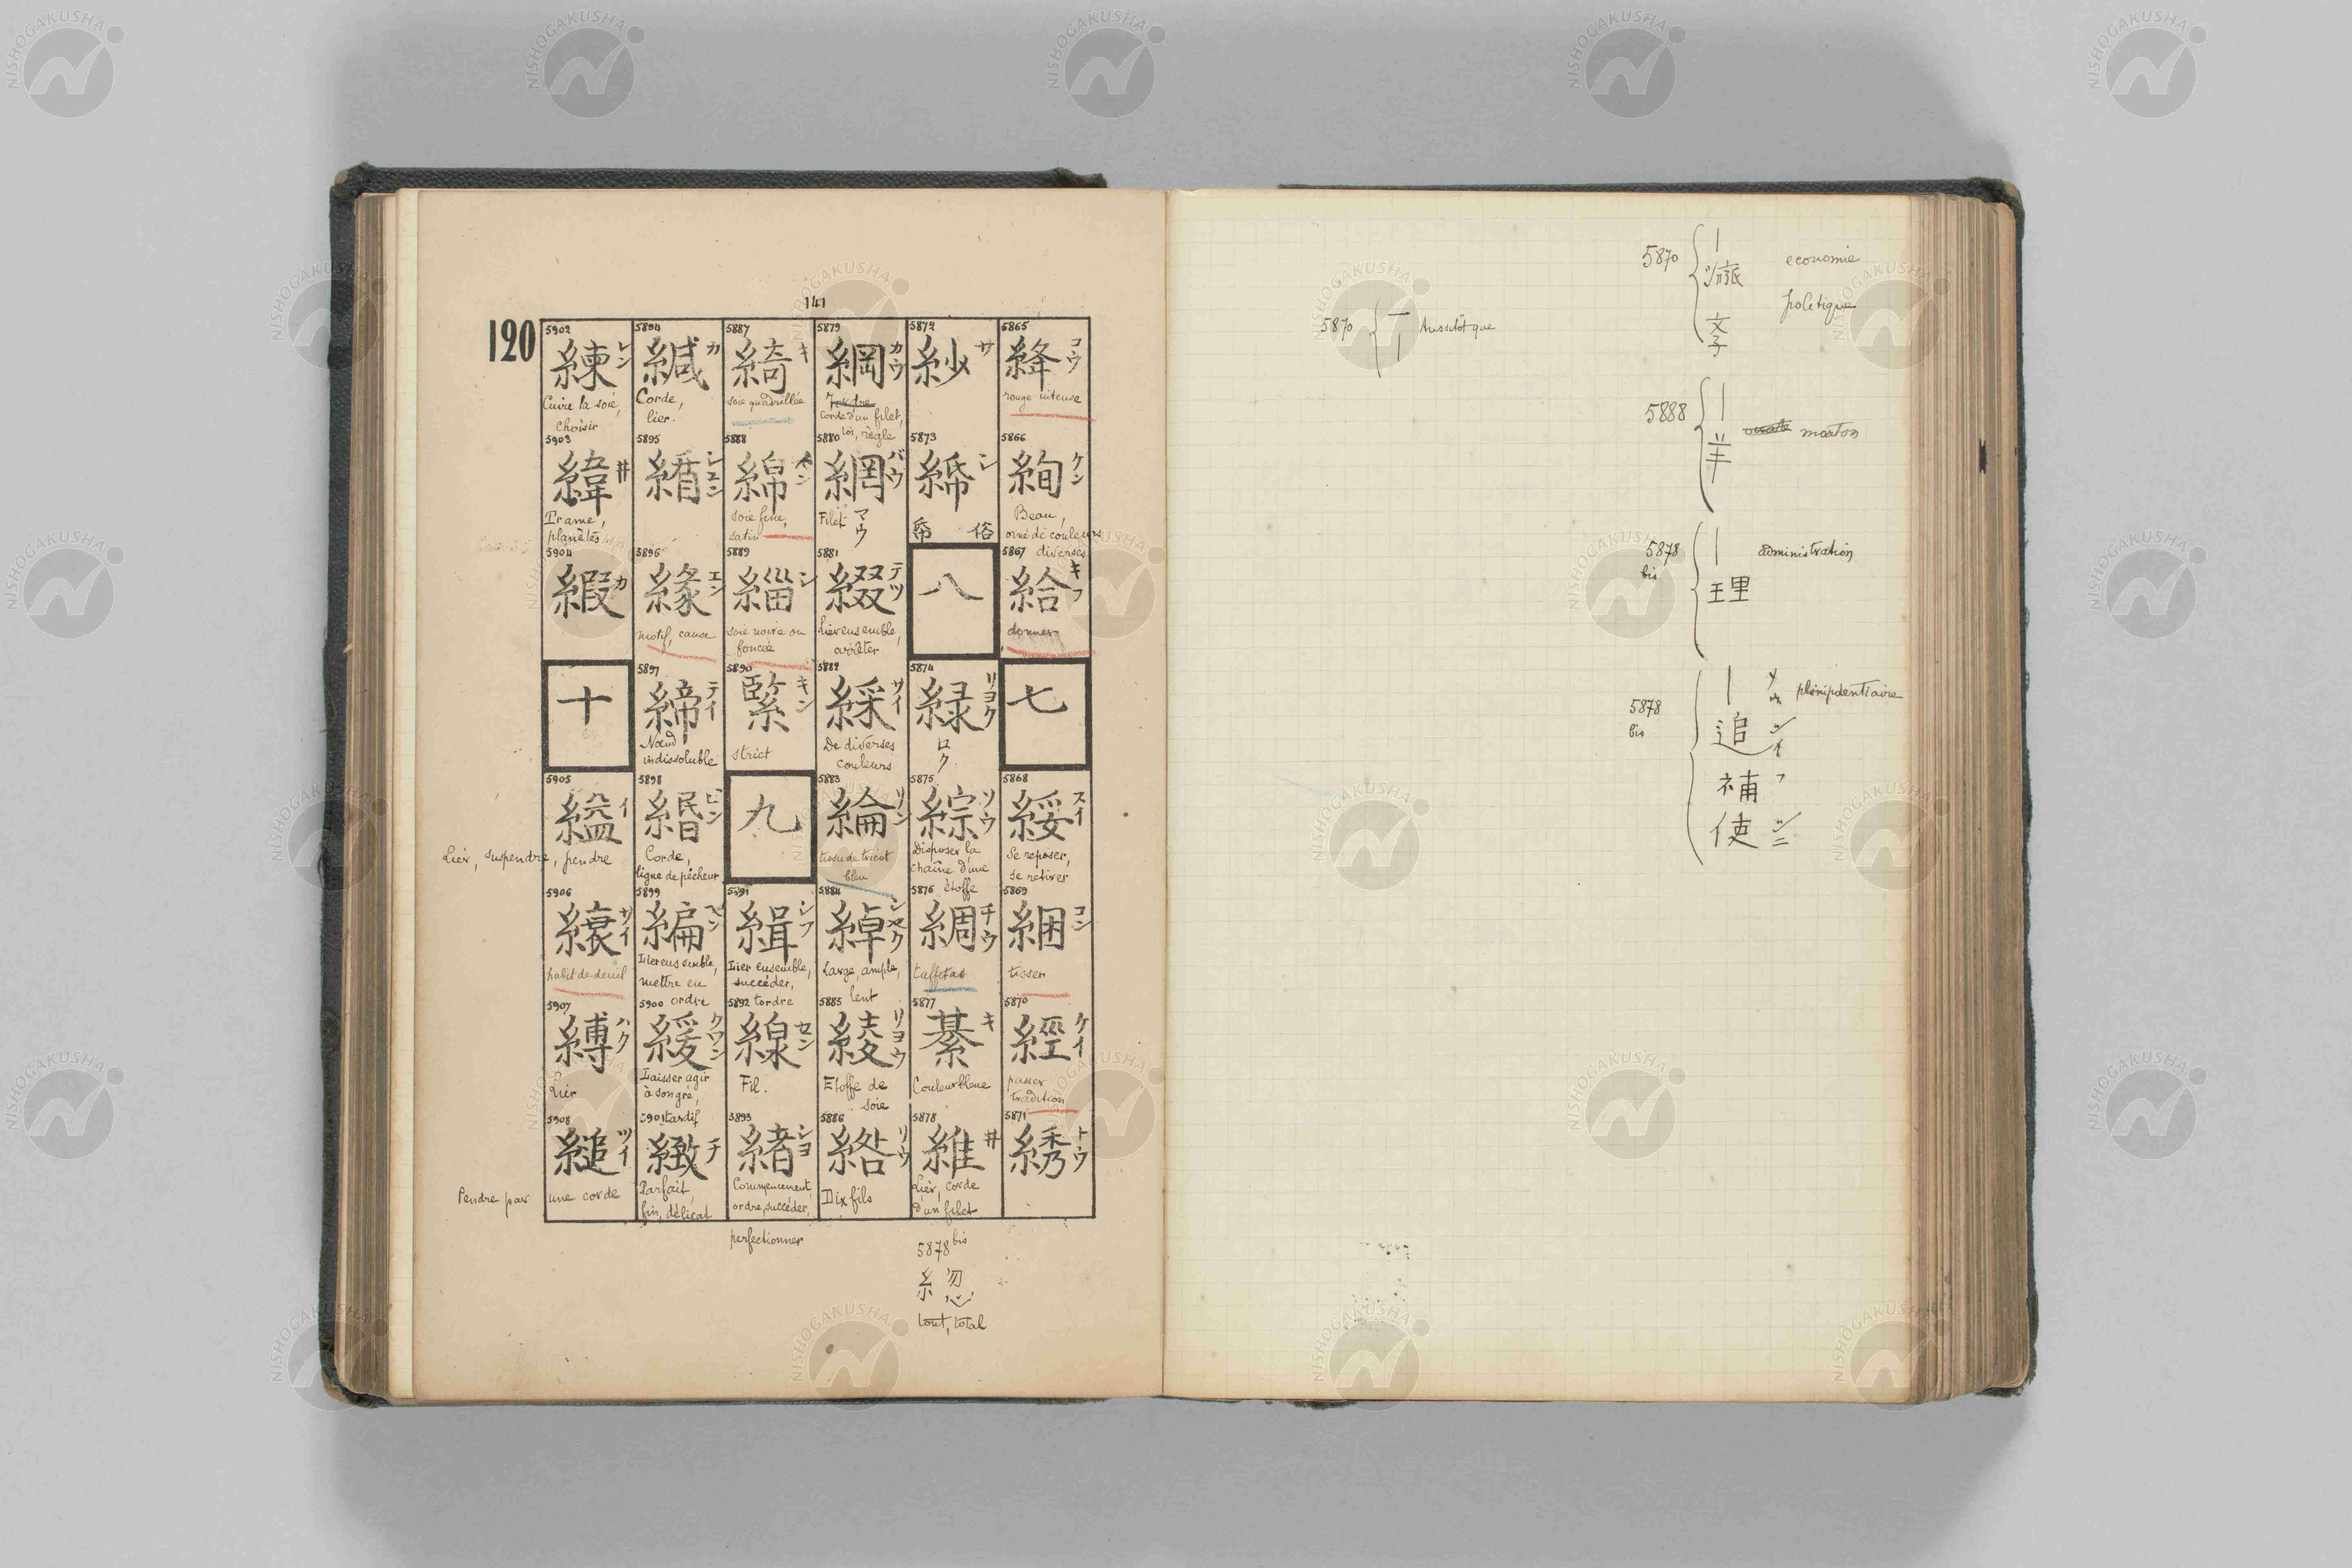 141
120
5865
絳 コウ
rouge intense
5866
絢 ケン
Beau,
orné de couleurs
diverses
5867
給 キフ
donner
七
5868
綏 スイ
Se reposer,
se retirer
5869
綑 コン
tisser
5870
經 ケイ
passer
tradition
5871
綉 トウ
5872
紗 サ
5873
㡀 シ
俗
八
5874
緑 リヨク
ロク
5875
綜 ソウ
Disposer la
chaîne d'une
étoffe
5876
綢 チウ
taffetas
5877
綦 キ
Couleur bleue
5878
維 井
Lier, corde
d'un filet
5878 bis
緫
tout, total
5879
綱 カウ
Corde d'un filet,
loi, règle
5880
網 バウ
Filet マウ
5881
綴 テツ
Lier ensemble,
arrêter
5882
綵 サイ
De diverses
couleurs
5883
綸 リン
tissu de tricot
bleu
5884
綽 シヤク
Large, ample,
lent
5885
綾 リヨウ
Etoffe de
soie
5886
綹 リウ
Dix fils
5887
綺 キ
soie quadrillée
5888
綿 メン
Soie fine,
satin
5889
緇 シ
soie noire ou
foncée
5890
緊 キン
strict
九
5891
緝 シフ
Lier ensemble,
succéder,
tordre
5892
線 セン
Fil.
5893
緒 シヨ
Commencement,
ordre, succéder,
perfectionner
5894
緘 カ
Corde,
lier.
5895
緧 シユン
5896
緣 エン
motif, cause
5897
締 テイ
Nœud
indissoluble
5898
緡 ビン
Corde,
ligne de pêcheur
5899
編 ヘン
Lier ensemble,
mettre en
ordre
5900
緩 クワン
Laisser agir
à son gré,
tardif
5901
緻 チ
Parfait,
fin, délicat
5902
練 レン
Cuire la soie,
choisir
5903
緯 井
Trame,
planètes
5904
緞 カ
十
5905
縊 イ
Lier, suspendre, pendre
5906
縗 サイ
habit de deuil
5907
縛 ハク
Lier
5908
縋 ツイ
Pendre par une corde
5870
一
丨
Aussitôt que
5870
丨
濟
学
economie
politique
5888
丨
羊
mouton
5878
bis
丨
理
administration
5878
bis
丨
追
補 フ
使 シ
plénipotentiaire
NISHOGAKUSHA